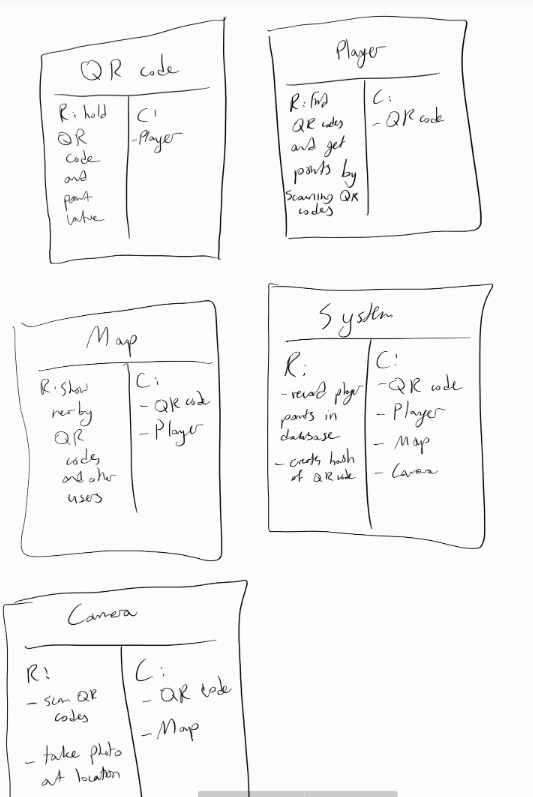 QR code
R: hold
QR
code
and
point
value
C:
- Player
Player
R: find
QR codes
and get
points by
scanning QR
codes
C:
- QR code
Map
R: show
nerby
QR
codes
and other
users
C:
- QR code
- Player
System
R:
- record player
points in
database
- create hash
of QR code
C:
- QR code
- Player
- Map
- Camera
Camera
R:
- scan QR
codes
- take photo
at location
C:
- QR code
- Map